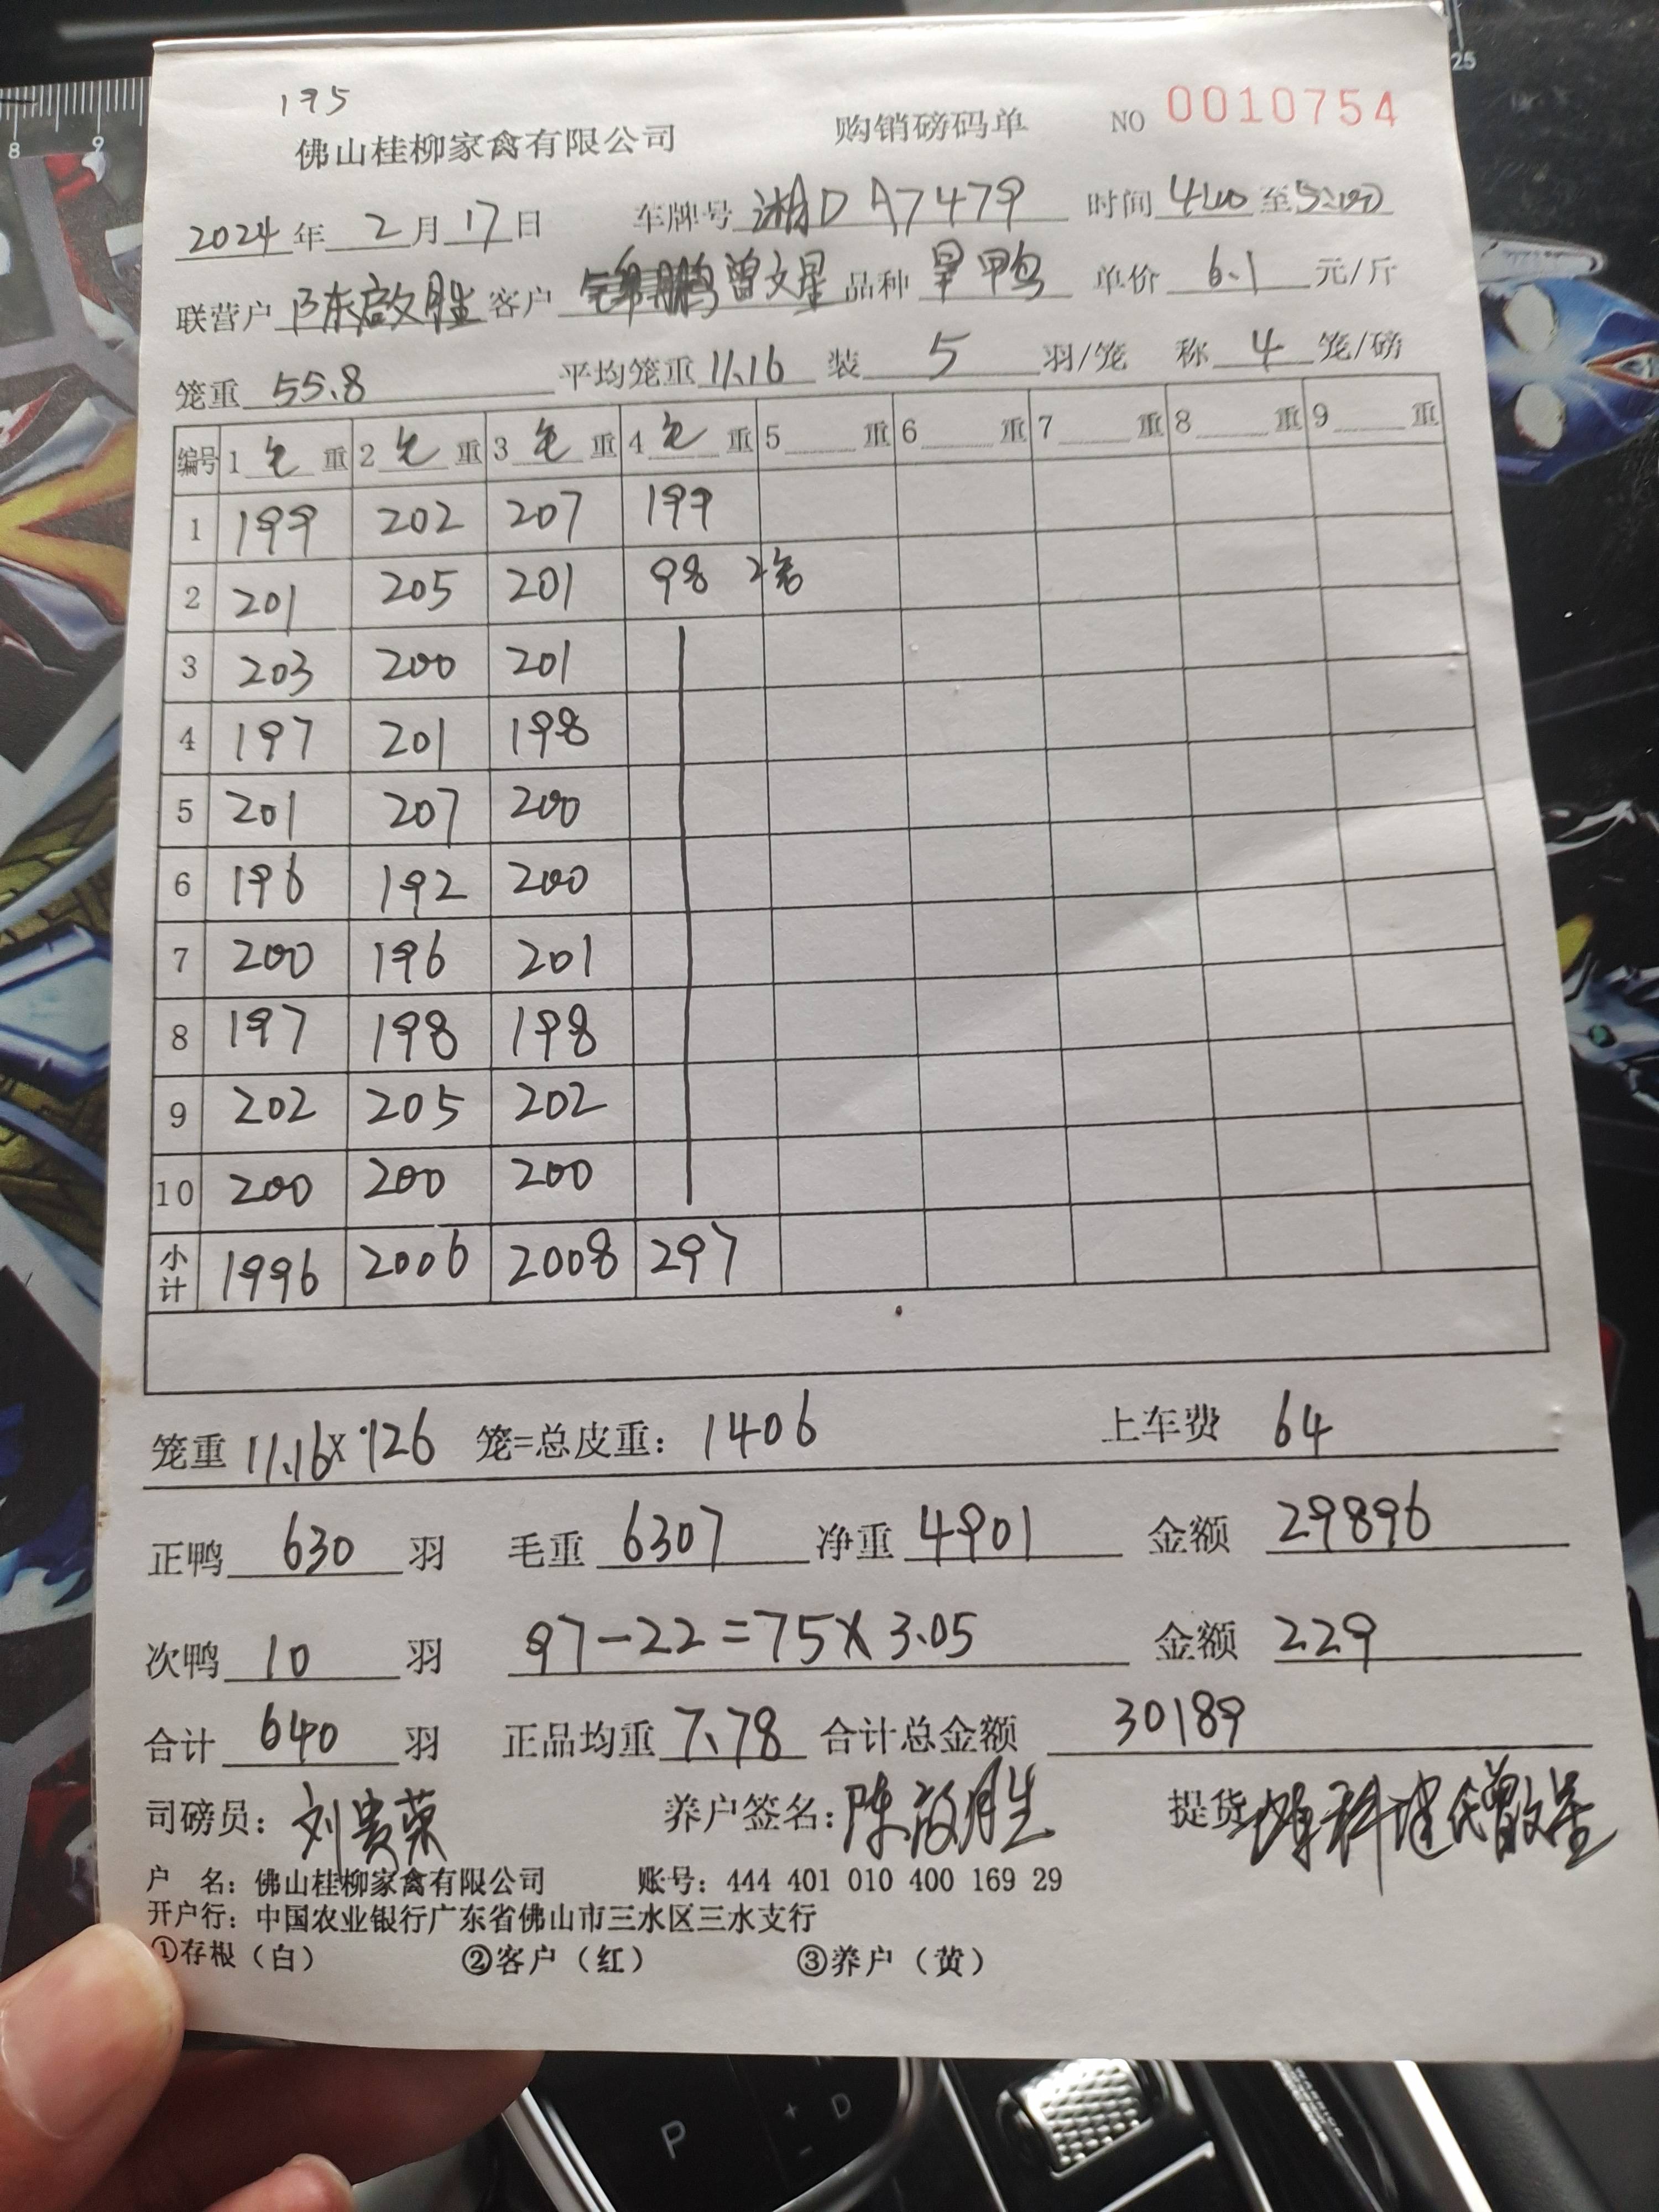 195
佛山桂柳家禽有限公司 购销磅码单 NO 0010754
2024年2月17日 车牌号湘DA7479 时间4:00至5:00
联营户陈啟胜 客户曾文星 品种旱鸭 单价6.1元/斤
笼重55.8 平均笼重11.16 装5羽/笼 称4笼/磅
编号 1毛重 2毛重 3毛重 4毛重 5重 6重 7重 8重 9重
1 199 202 207 199
2 201 205 201 98 2笼
3 203 200 201
4 197 201 198
5 201 207 200
6 196 192 200
7 200 196 201
8 197 198 198
9 202 205 202
10 200 200 200
小计 1996 2006 2008 297
笼重11.16×126笼=总皮重:1406 上车费64
正鸭630羽 毛重6307 净重4901 金额29896
次鸭10羽 97-22=75×3.05 金额229
合计640羽 正品均重7.78 合计总金额30189
司磅员:刘贵荣 养户签名:陈啟胜 提货
户 名:佛山桂柳家禽有限公司 账号:444 401 010 400 169 29
开户行:中国农业银行广东省佛山市三水区三水支行
①存根(白) ②客户(红) ③养户(黄)
8 9
25
P
D